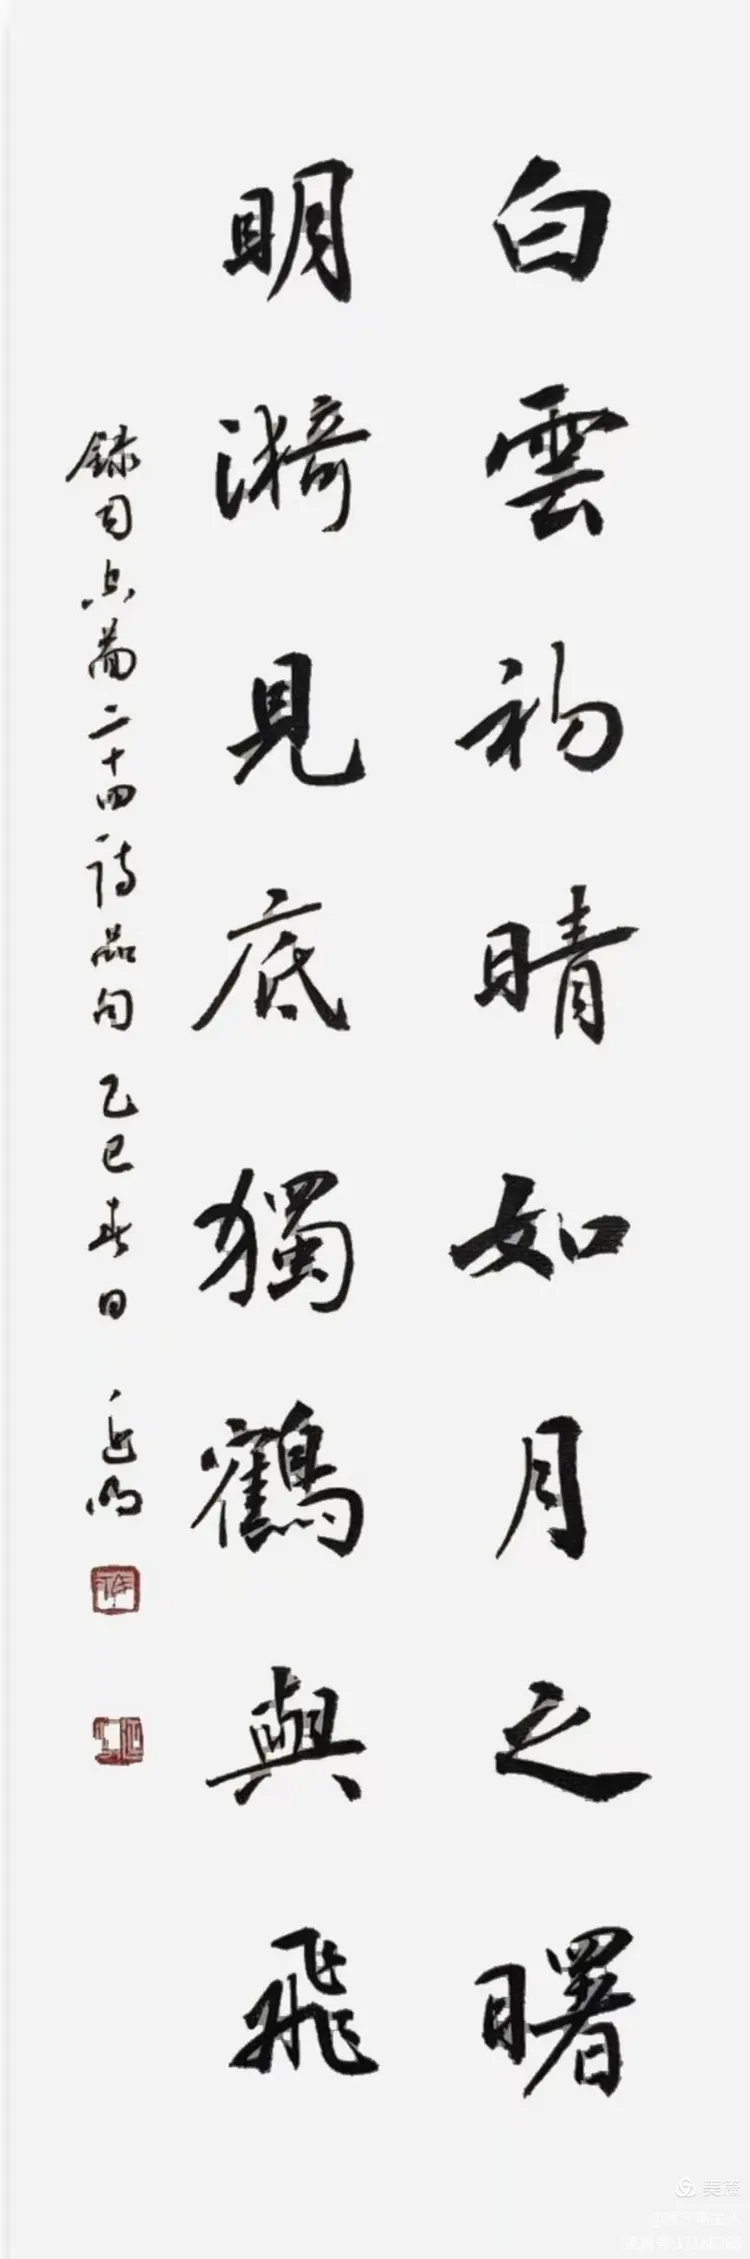 白雲初晴如月之曙
明漪見底獨鶴與飛
録司空圖二十四詩品句 乙巳春日
美篇